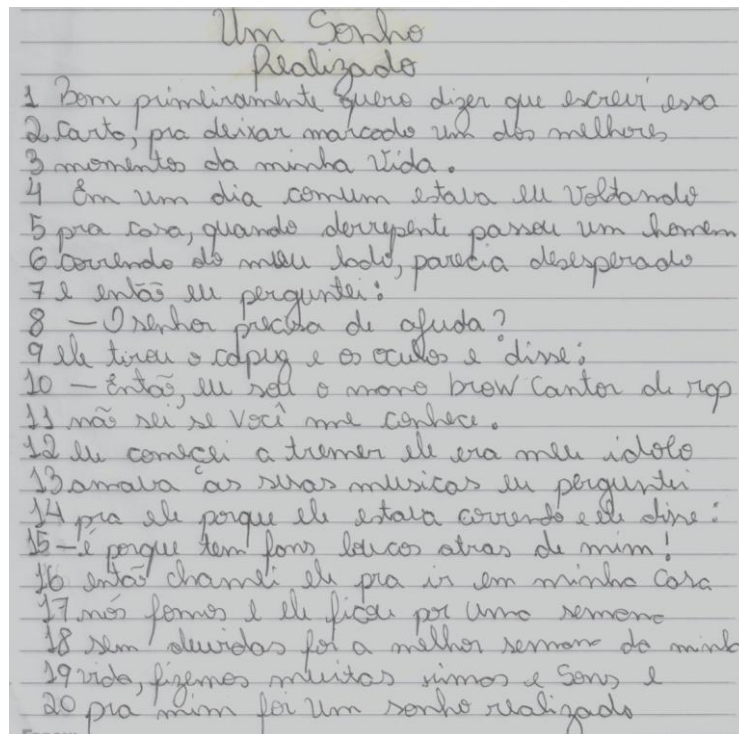 Um Sonho
Realizado
1 Bom primeiramente quero dizer que escrevi essa
2 carta, pra deixar marcado um dos melhores
3 momentos da minha vida.
4 Em um dia comum estava eu voltando
5 pra casa, quando derrepente passou um homem
6 correndo do meu lado, parecia desesperado
7 e então eu perguntei:
8 — O senhor precisa de ajuda?
9 ele tirou o capuz e os oculos e disse:
10 — Então, eu sou o mano brow cantor de rap
11 não sei se você me conhece.
12 eu comecei a tremer ele era meu idolo
13 amava as suas musicas eu perguntei
14 pra ele porque ele estava correndo e ele disse:
15 — é porque tem fans loucos atras de mim!
16 então chamei ele pra ir em minha casa
17 nós fomos e ele ficou por uma semana
18 sem duvidas foi a melhor semana da minha
19 vida, fizemos muitas rimas e sons e
20 pra mim foi um sonho realizado